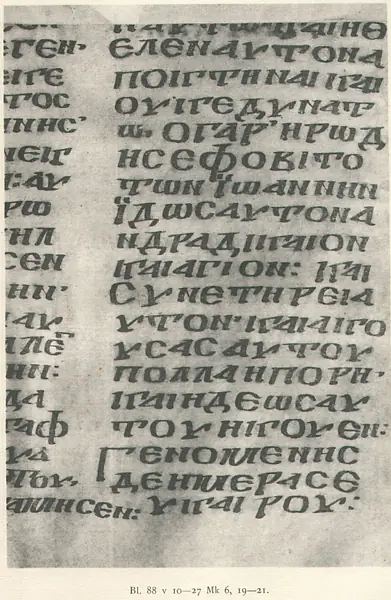 ΓΕΝ·
ΤΟC
ΝΗC·
:ΑΥ
ΡΩ
ΗΛ
CΕΝ
ΗΝ·
ΑΥ
ΗΝ:
ΔΑ
ΥΑ
ΤΟΥ·
ΑΜΗCΕΝ:
ΚΑΙΗΘ
ΕΛΕΝΑΥΤΟΝΑ
ΠΟΚΤΗΝΑΙΚΑΙ
ΟΥΚΕΔΥΝΑΤ
Ω· ΟΓΑΡ'ΗΡΩΔ
ΗCΕΦΟΒΙΤΟ
ΤΩΝΪΩΑΝΝΗΝ
ΪΔΩCΑΥΤΟΝΑ
ΝΔΡΑΔΙΚΑΙΟΝ
ΚΑΙΑΓΙΟΝ: ΚΑΙ
CΥΝΕΤΗΡΕΙΑ
ΥΤΟΝ·ΚΑΙΑΚΟ
ΥCΑCΑΥΤΟΥ
ΠΟΛΛΑΗΠΟΡΗ·
ΚΑΙΗΔΕΩCΑΥ
ΤΟΥΗΚΟΥΕΝ:
ΓΕΝΟΜΕΝΗC
ΔΕΗΜΕΡΑCΕ
ΥΚΑΙΡΟΥ:
Bl. 88 v 10—27 Mk 6, 19—21.